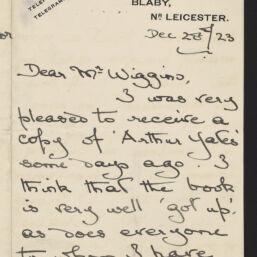 TELE
TELEGRAM
BLABY,
Nr LEICESTER.
Dec 28th/23
Dear Mr Wiggins,
I was very
pleased to receive a
copy of 'Arthur Yates'
some days ago. I
think that the book
is very well 'got up'.
as does everyone
to whom I have